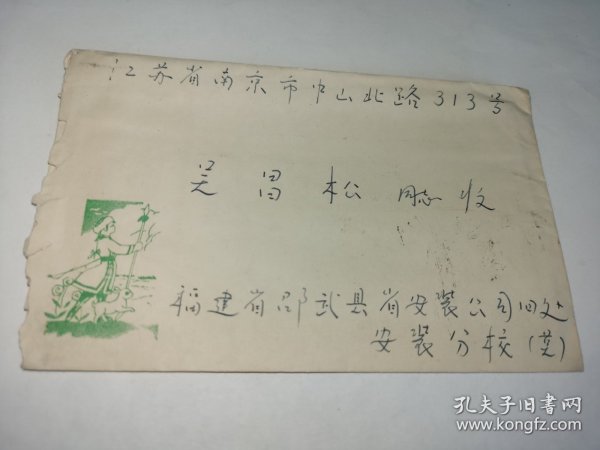 江苏省南京市中山北路313号
吴昌松 同志 收
福建省邵武县省安装公司四处
安装分校(莫)
孔夫子旧书网
www.kongfz.com